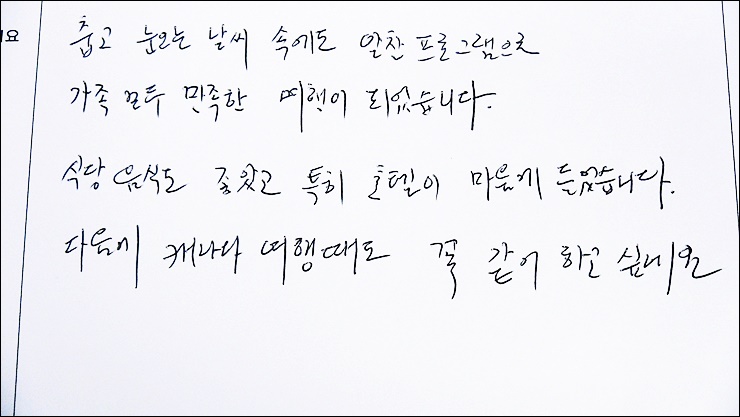 춥고 눈오는 날씨 속에도 알찬 프로그램으로
가족 모두 만족한 여행이 되었습니다.
식당 음식도 좋았고 특히 호텔이 마음에 들었습니다.
다음에 캐나다 여행때도 꼭 같이 하고 싶네요